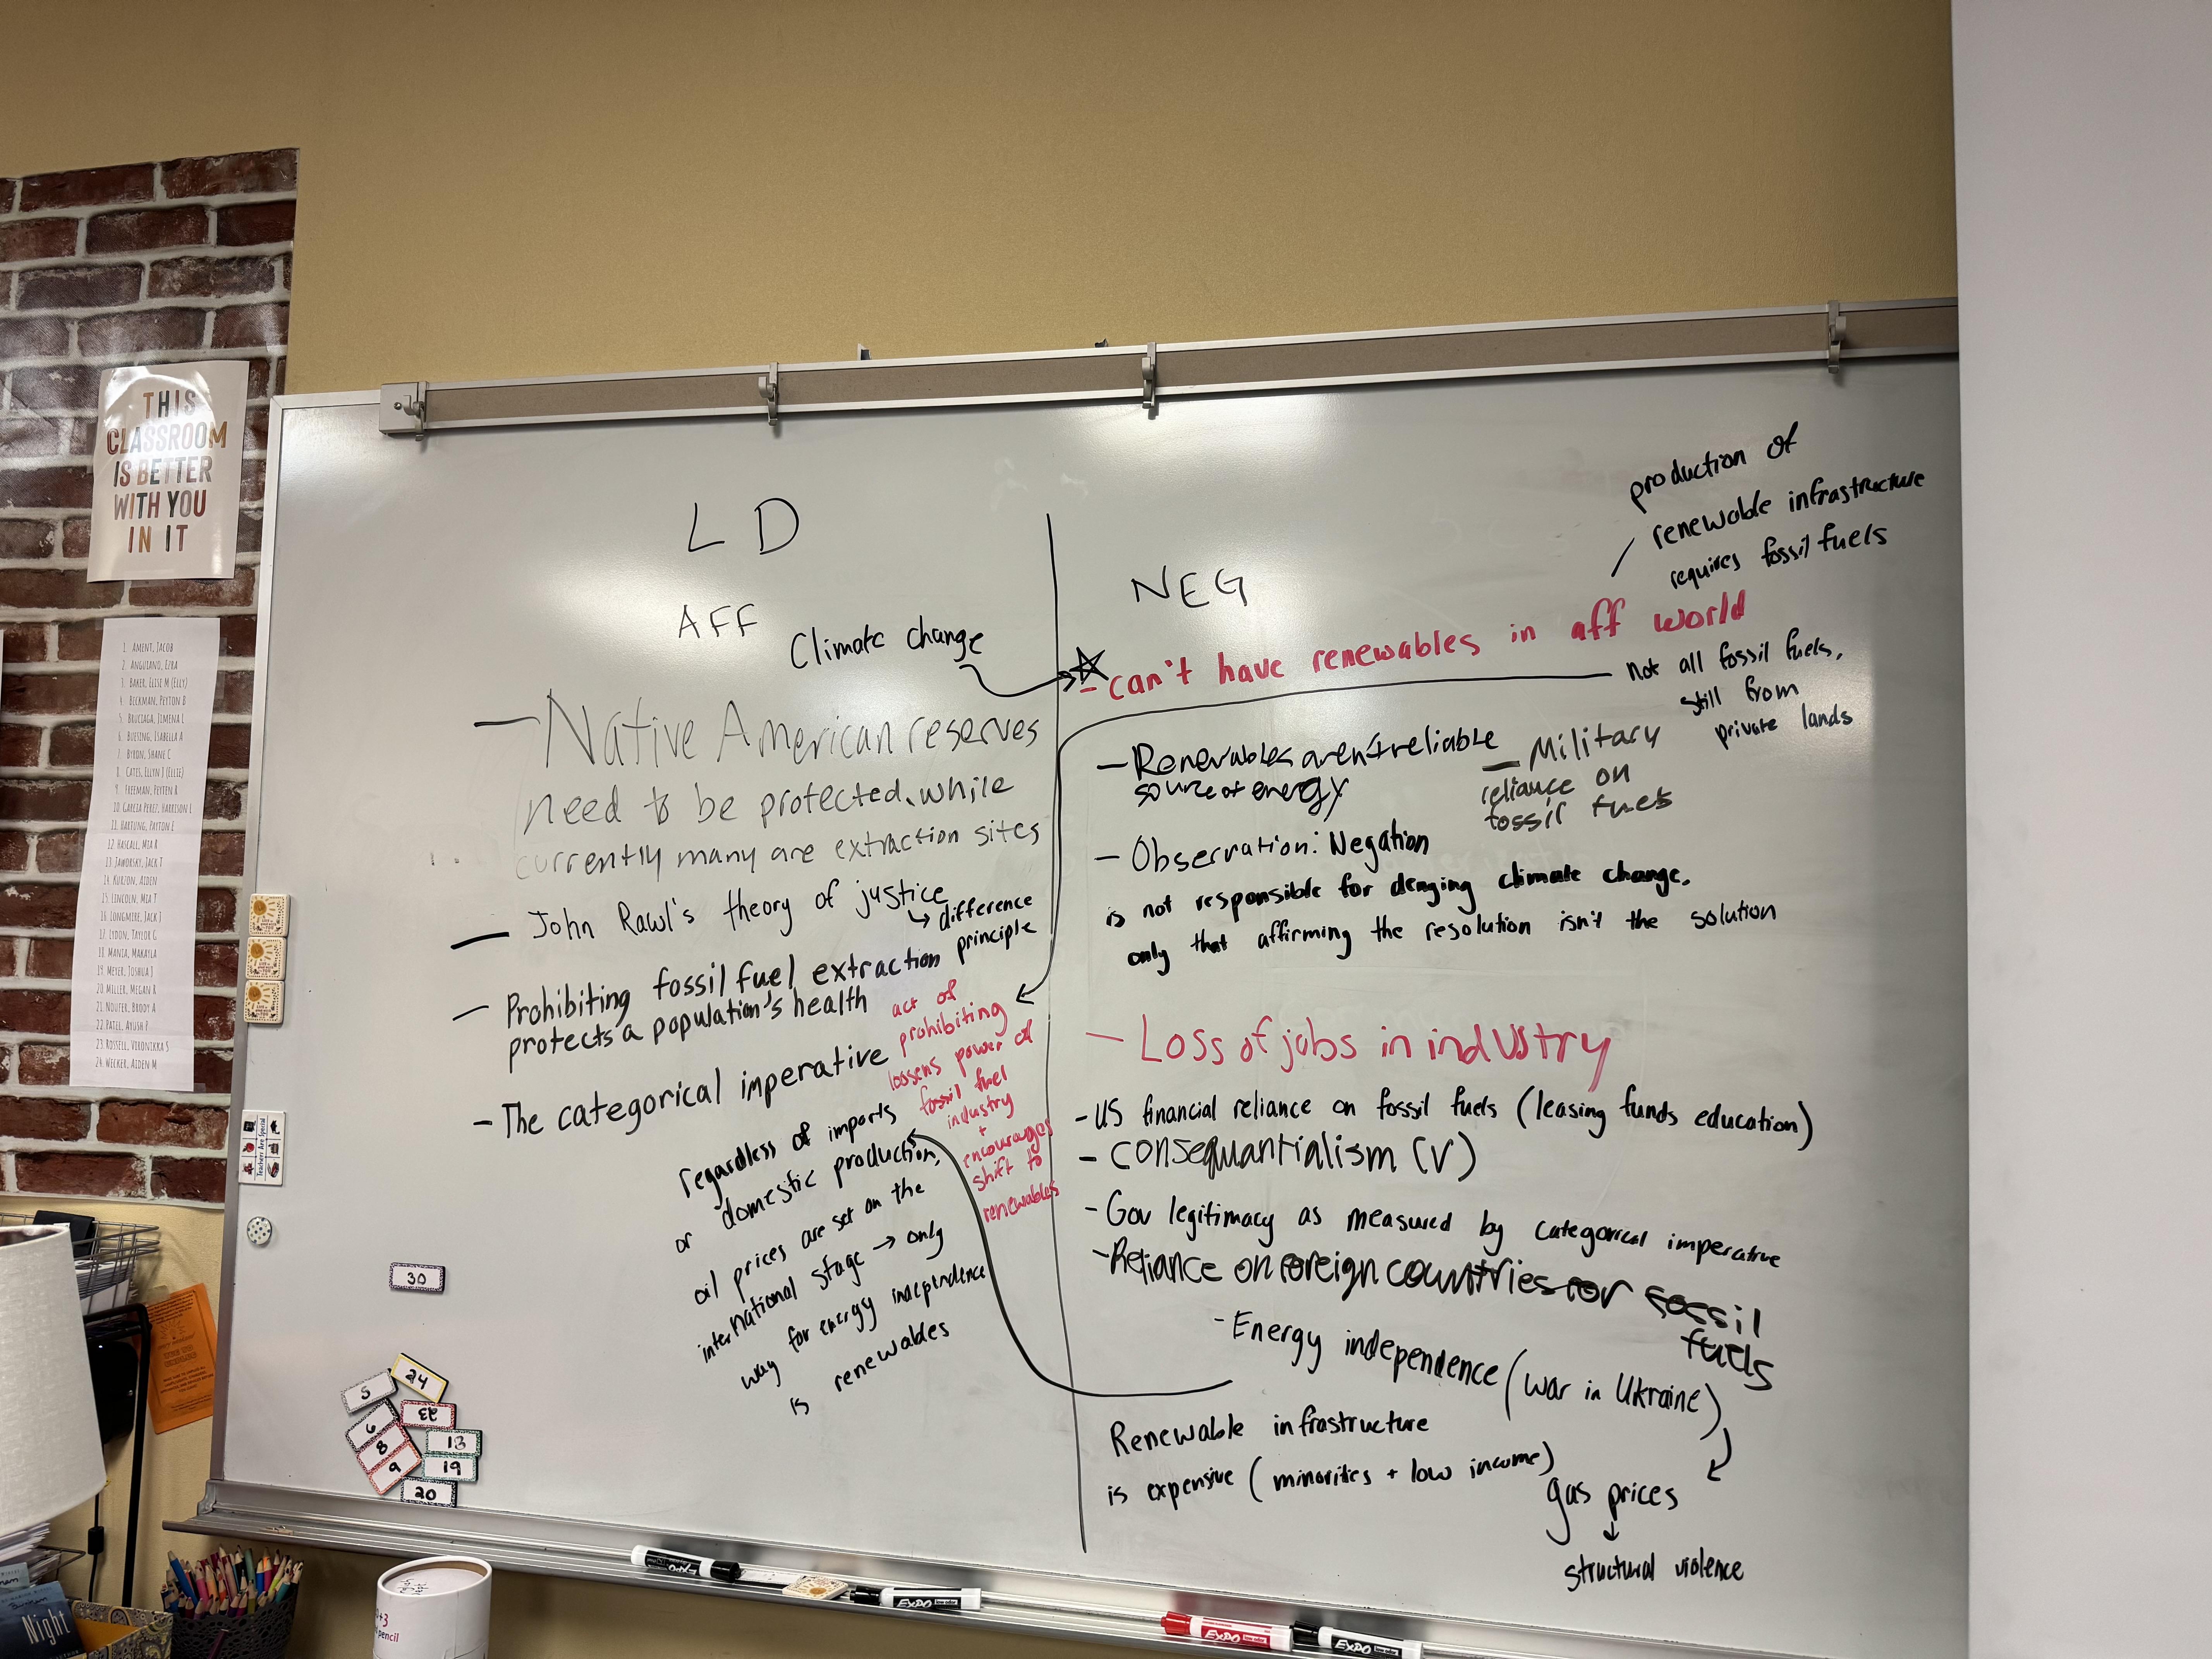 THIS
CLASSROOM
IS BETTER
WITH YOU
IN IT
1. AMENT, JACOB
2. ANGUIANO, EZRA
3. BAKER, ELISE M (ELLY)
4. BECKMAN, PEYTON B
5. BRUCIAGA, JIMENA L
6. BUESING, ISABELLA A
7. BYRON, SHANE C
8. CATES, ELLYN J (ELLIE)
9. FREEMAN, PEYTEN R
10. GARCIA PEREZ, HARRISON L
11. HARTUNG, PAYTON E
12. HASCALL, MIA R
13. JAWORSKY, JACK T
14. KURZON, AIDEN
15. LINCOLN, MIA T
16. LONGMIRE, JACK J
17. LYDON, TAYLOR G
18. MANIA, MAKAYLA
19. MEYER, JOSHUA J
20. MILLER, MEGAN R
21. NOUFER, BRODY A
22. PATEL, AYUSH P
23. ROSSELL, VERONIKKA S
24. WECKER, AIDEN M
Teachers Are Special
LD
AFF
Climate change
— Native American reserves
need to be protected, while
currently many are extraction sites
— John Rawl's theory of justice
↳ difference
principle
— Prohibiting fossil fuel extraction
protects a population's health
- The categorical imperative
act of
prohibiting
loosens power of
fossil fuel
industry
+
encourages
shift to
renewables
regardless of imports
or domestic production,
oil prices are set on the
international stage → only
way for energy independence
is renewables
NEG
production of
renewable infrastructure
requires fossil fuels
- can't have renewables in aff world
not all fossil fuels,
still from
private lands
— Renewables aren't reliable
source of energy
— Military
reliance on
fossil fuels
— Observation: Negation
is not responsible for denying climate change,
only that affirming the resolution isn't the solution
- Loss of jobs in industry
- US financial reliance on fossil fuels (leasing funds education)
- consequantialism (V)
- Gov legitimacy as measured by categorical imperative
- Reliance on foreign countries for fossil
fuels
- Energy independence (war in Ukraine)
Renewable infrastructure
is expensive (minorities + low income)
gas prices
↓
structural violence
30
24
5
23
6
8
9
18
19
20
Night
pencil
EXPO
EXPO
EXPO
EXPO